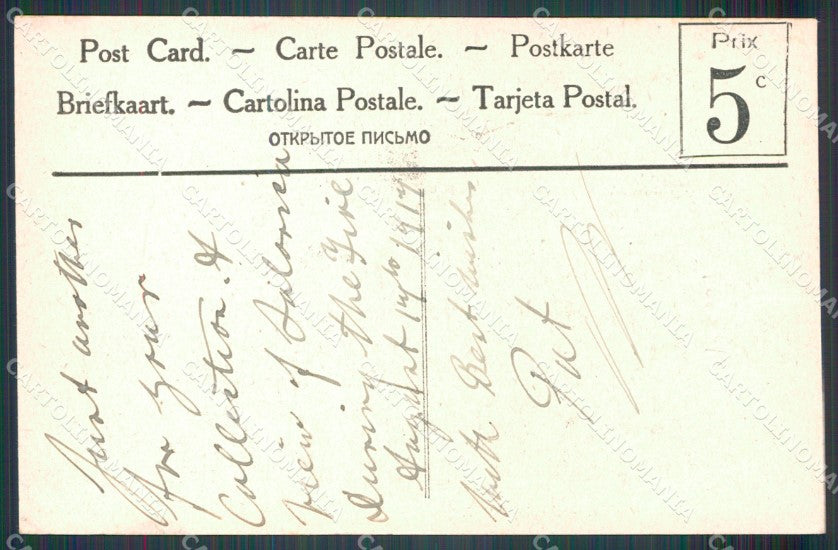 Post Card. ~ Carte Postale. ~ Postkarte
Briefkaart. ~ Cartolina Postale. ~ Tarjeta Postal.
ОТКРЫТОЕ ПИСЬМО
Prix
5c
Just another
for your
Collection. A
view of Salonica
during the Fire
August 1917
With Best Wishes
Pat
CARTOLINOMANIA